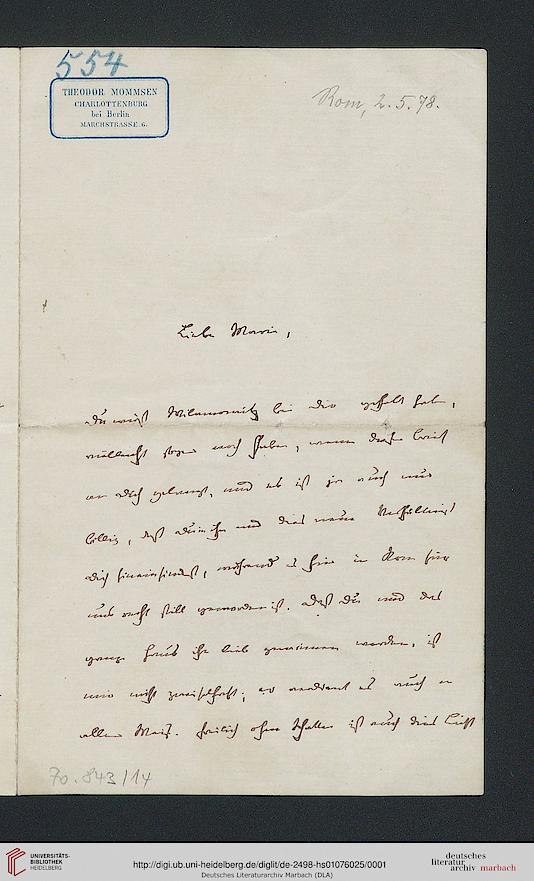 554
THEODOR MOMMSEN
CHARLOTTENBURG
bei Berlin
MARCHSTRASSE 6.
Rom, 2.5.78.
Liebe Marie,
du wirst Wilamowitz bei dir gehabt haben,
vielleicht sogar noch haben, wenn dieser Brief
an dich gelangt, und es ist ja auch nur
billig, daß du in ihn und dies neue Verhältniß
dich hineinfindest, während es hier in Rom für
uns recht still geworden ist. Daß du und das
ganze Haus ihn lieb gewinnen werden, ist
mir nicht zweifelhaft; er verdient es auch in
aller Weise. Freilich ohne Schatten ist auch dies Licht
70.843/14
UNIVERSITÄTS-
BIBLIOTHEK
HEIDELBERG
http://digi.ub.uni-heidelberg.de/diglit/de-2498-hs01076025/0001
Deutsches Literaturarchiv Marbach (DLA)
deutsches
literatur
archiv marbach